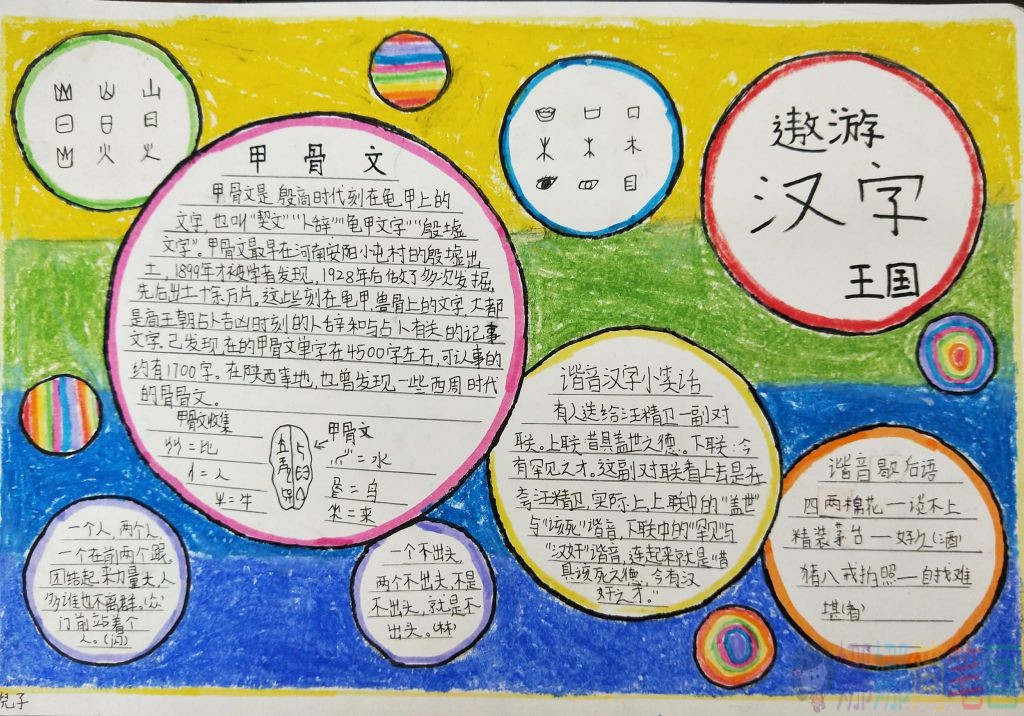 遨游
汉字
王国
山
日
火
口
木
目
甲骨文
甲骨文是殷商时代刻在龟甲上的
文字,也叫"契文""卜辞""龟甲文字""殷墟
文字"。甲骨文最早在河南安阳小屯村的殷墟出
土,1899年才被学者发现,1928年后做了多次发掘,
先后出土十余万片。这些刻在龟甲、兽骨上的文字,大都
是商王朝占卜吉凶时刻的卜辞和与占卜有关的记事
文字。已发现在的甲骨文单字在4500字左右,可认事的
约有1700字。在陕西等地,也曾发现一些西周时代
的骨骨文。
甲骨文收集
=比
=人
=牛
甲骨文
=水
=鸟
=来
谐音汉字小笑话
有人送给汪精卫一副对
联。上联:昔具盖世之德。下联:今
有罕见之才。这副对联看上去是在
夸汪精卫,实际上上联中的"盖世"
与"该死"谐音,下联中的"罕见"与
"汉奸"谐音,连起来就是"昔
具该死之德,今有汉
奸之才。"
谐音歇后语
四两棉花——谈不上
精装茅台——好久(酒)
猪八戒拍照——自找难
堪(看)
一个人,两个人,
一个在前两个跟。
团结起来力量大,人
多谁也不离群。(众)
门前站着个
人。(闪)
一个不出头,
两个不出头,不是
不出头,就是不
出头。(林)
兒子